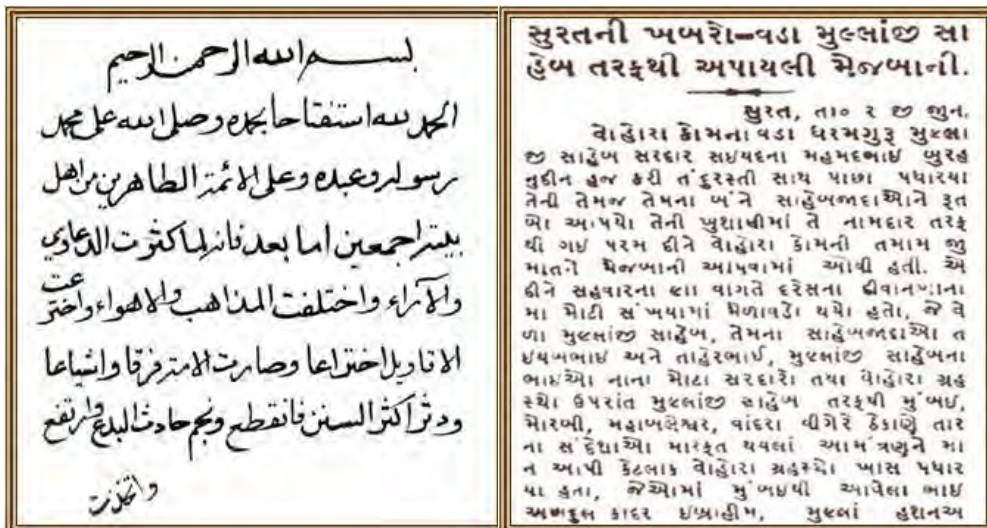 بسم الله الرحمن الرحيم
الحمد لله استفتاحا بحمده وصلى الله على محمد
رسوله وعبده وعلى الائمة الطاهرين من اهل
بيته اجمعين اما بعد فانه لما كثرت الدعاوي
والآراء واختلفت المذاهب والاهواء واخترعت
الاقاويل اختراعا وصارت الامة فرقا واشياعا
ودثر اكثر السنن فانقطع ونجم حادث البدع وارتفع
واتخذت
સુરતની ખબરો–વડા મુલ્લાંજી સા
હેબ તરફથી અપાયલી મેજબાની.
સુરત, તા૦ ૨ જી જુન.
વોહોરા કોમના વડા ધરમગુરૂ મુલ્લા
જી સાહેબ સરદાર સઇયદના મહમદભાઇ બુરહ
નુદીન હજ કરી તંદુરસ્તી સાથ પાછા પધારયા
તેની તેમજ તેમના બંને સાહેબજાદાઓને રૂત
બો આપયો તેની ખુશાલીમાં તે નામદાર તરફ
થી ગઇ પરમ દીને વોહોરા કોમની તમામ જી
માતને મેજબાની આપવામાં ઓવી હતી. એ
દીને સહવારના વાગતે દરેસના દીવાનખાના
મા મોટી સંખયામાં મેળાવડો થયો હતો, જે વે
ળા મુલ્લાંજી સાહેબ, તેમના સાહેબજાદાઓ ત
ઇયબભાઇ અને તાહેરભાઈ, મુલ્લાંજી સાહેબના
ભાઇઓ નાના મોટા સરદારો તથા વોહોરા ગ્રહ
સ્થો ઉપરાંત મુલ્લાંજી સાહેબ તરફથી મુંબઇ,
મોરબી, મહાબલેશ્વર, વાંદરા વીગેરે ઠેકાણે તાર
ના સંદેશાઓ મારફત થયલાં આમંત્રણને મા
ન આપી કેટલાક વોહોરા ગ્રહસ્થો ખાસ પધાર
યા હતા, જેઓમાં મુંબઇથી આવેલા ભાઇ
અબદુલ કાદર ઇબ્રાહીમ, મુલ્લાં હશનઅ